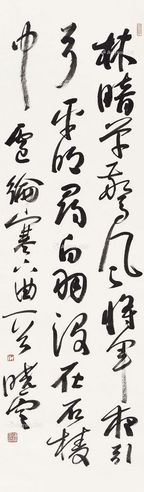 林暗草驚風將軍夜引
弓平明尋白羽沒在石棱
中 盧綸塞下曲 曉雲